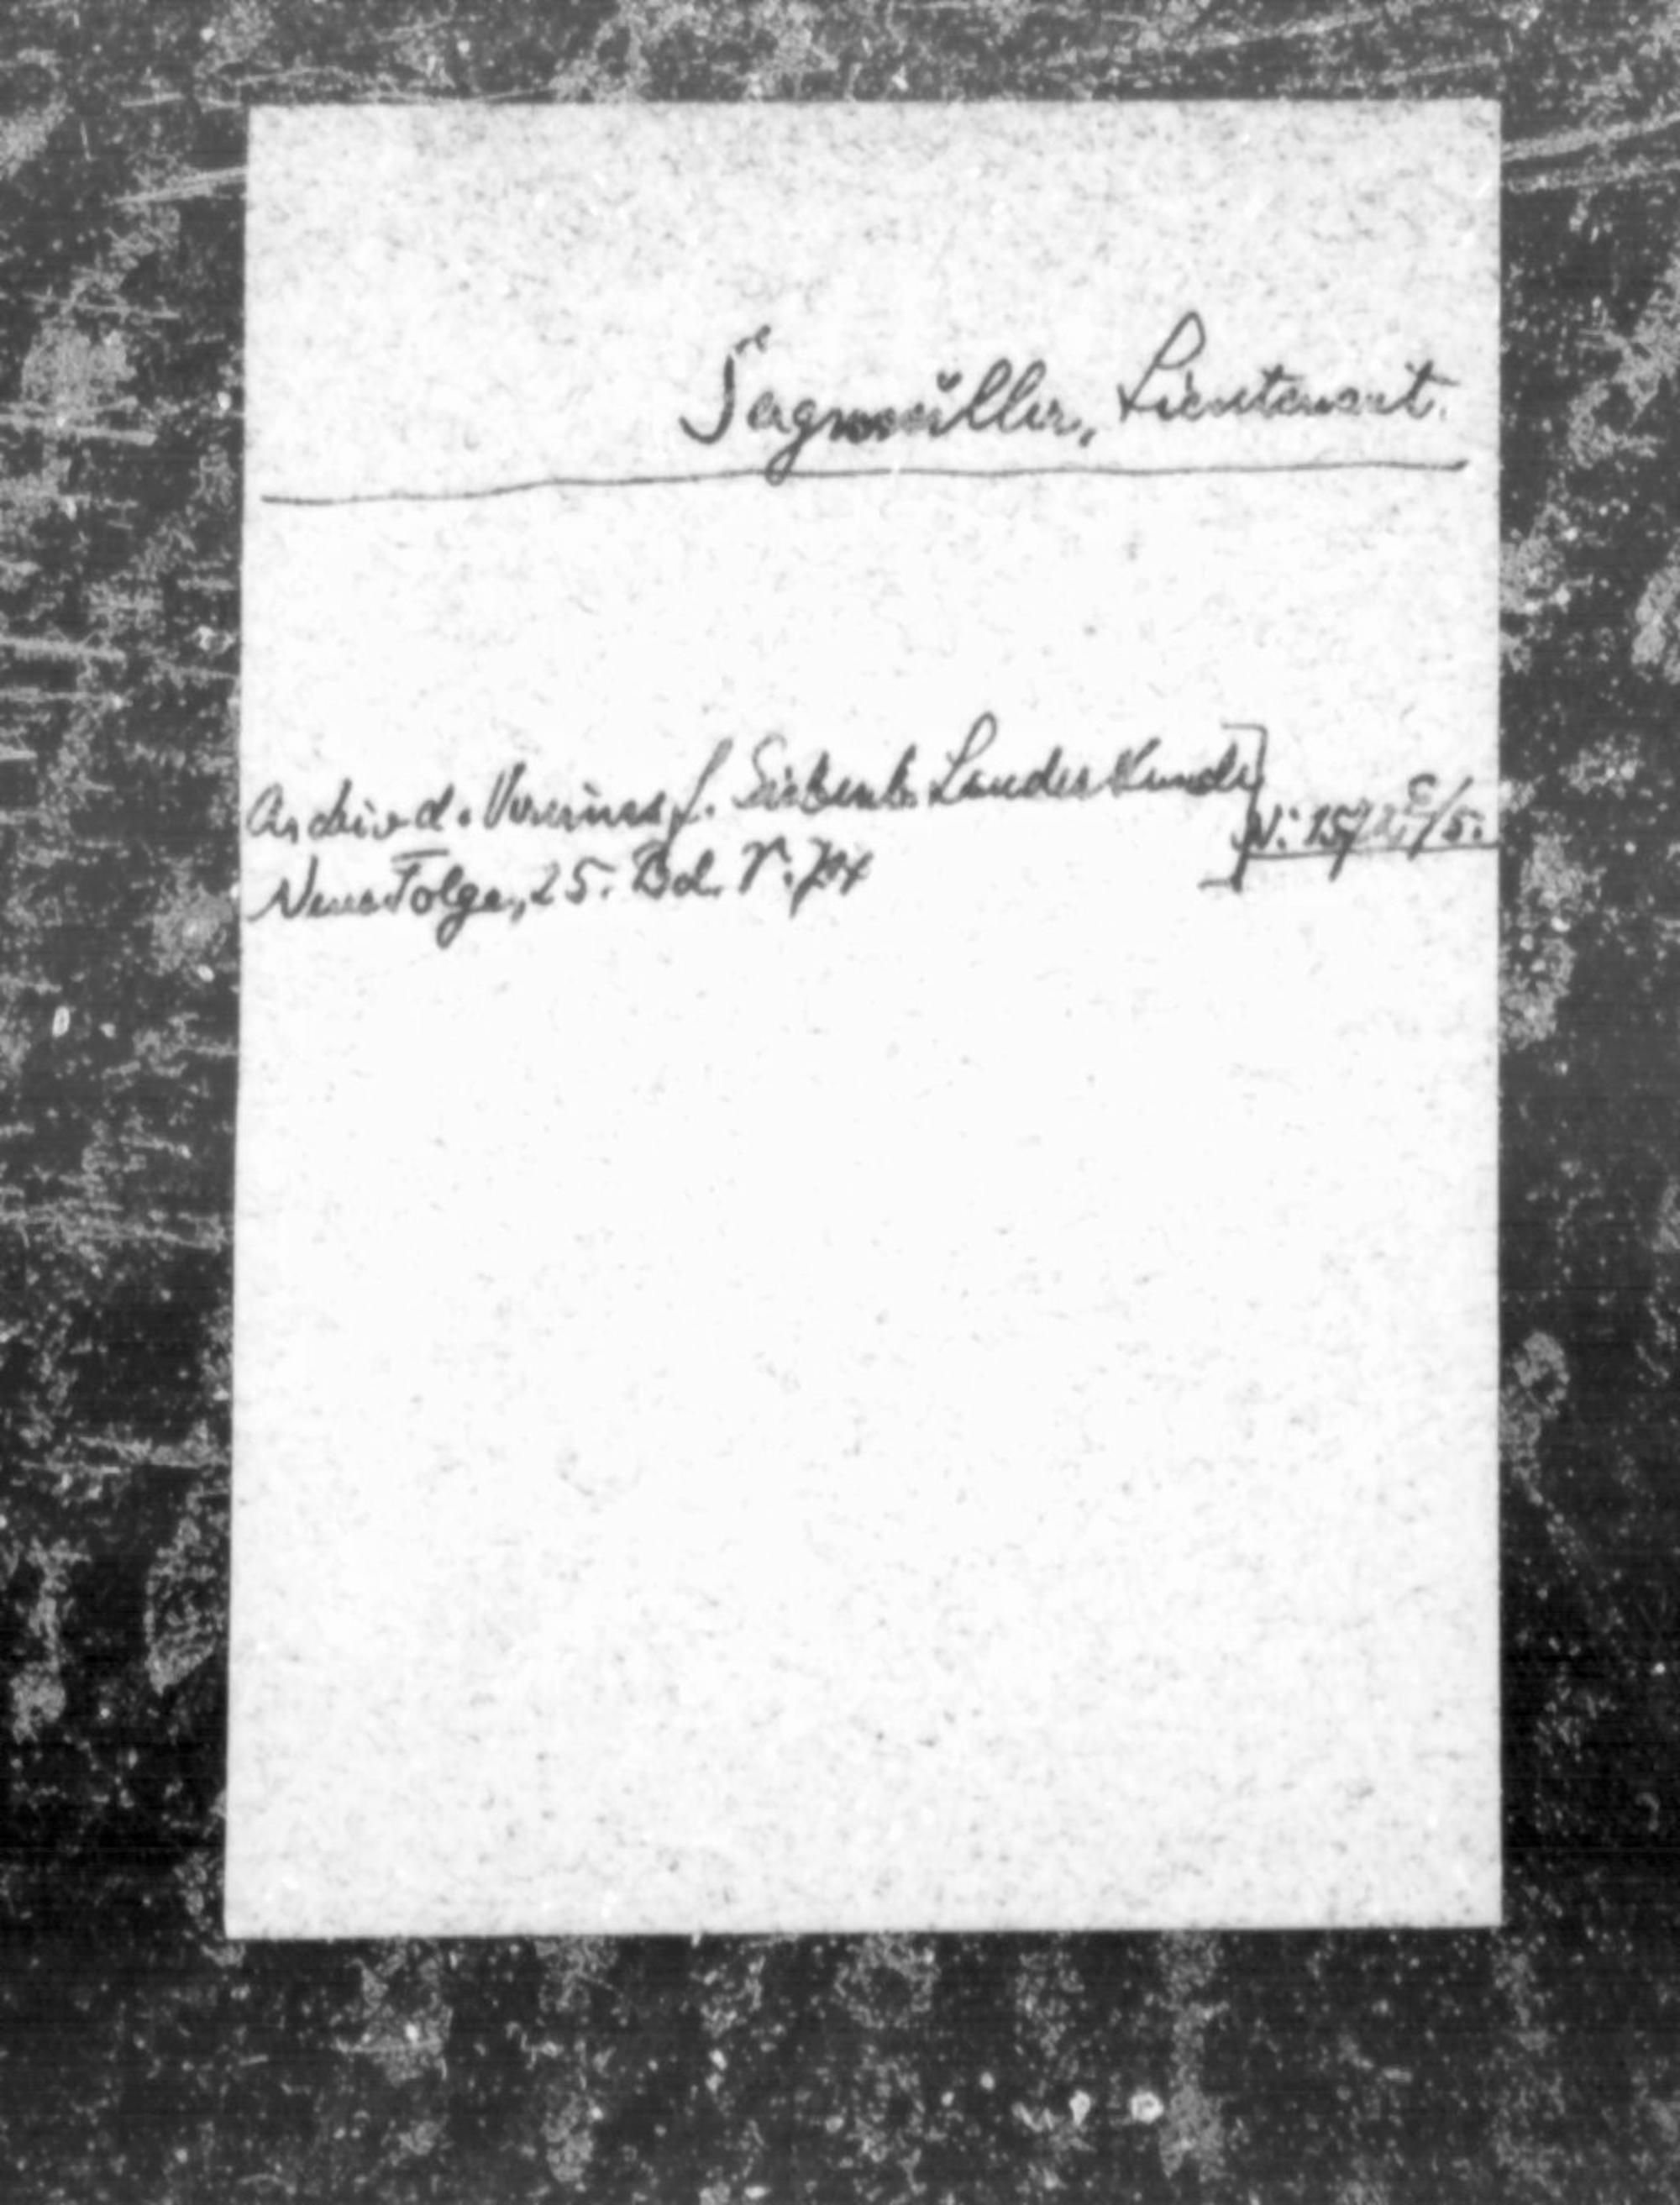 Sägmüller, Lieutenant.
Archiv d. Vereines f. Siebenb. Landeskunde
Neue Folge, 25. Bd.